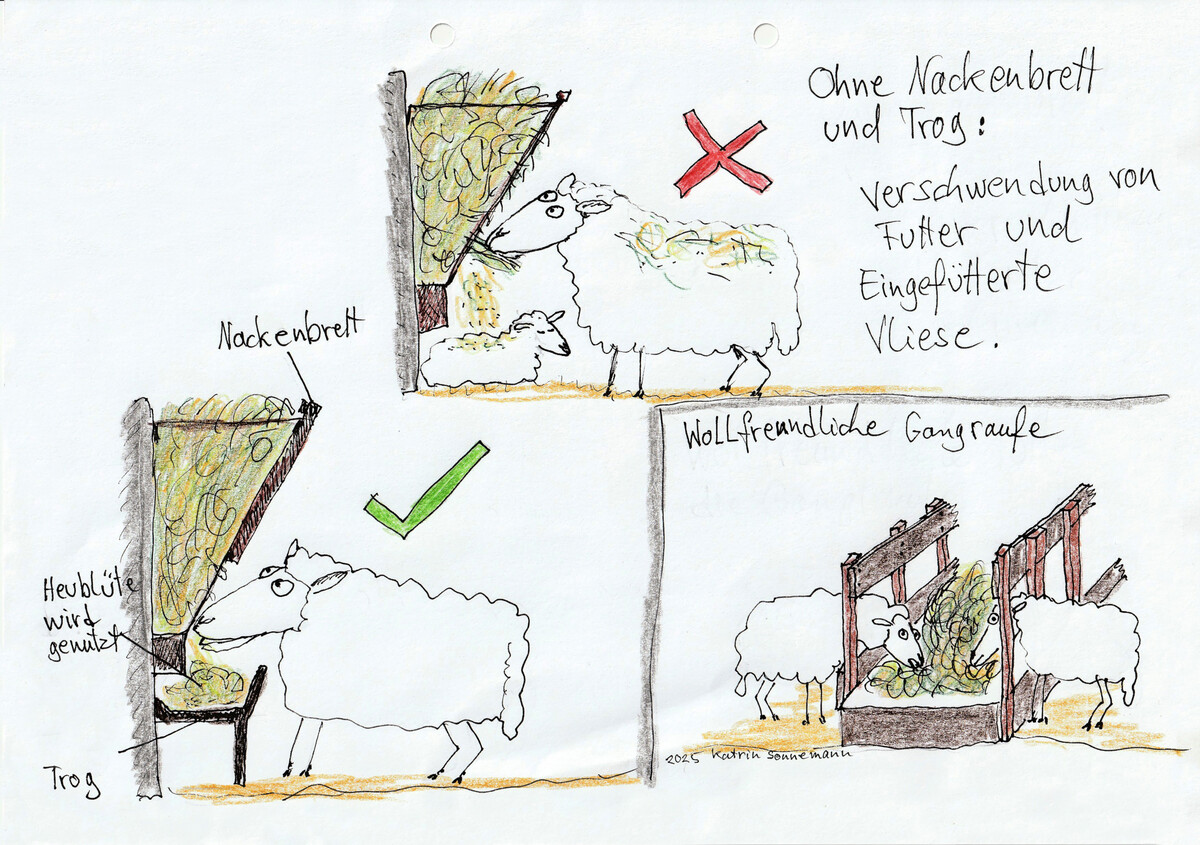 Ohne Nackenbrett
und Trog:
Verschwendung von
Futter und
Eingefütterte
Vliese.
Nackenbrett
Heublüte
wird
genutzt
Trog
Wollfreundliche Gangraufe
2025 Katrin Sonnemann